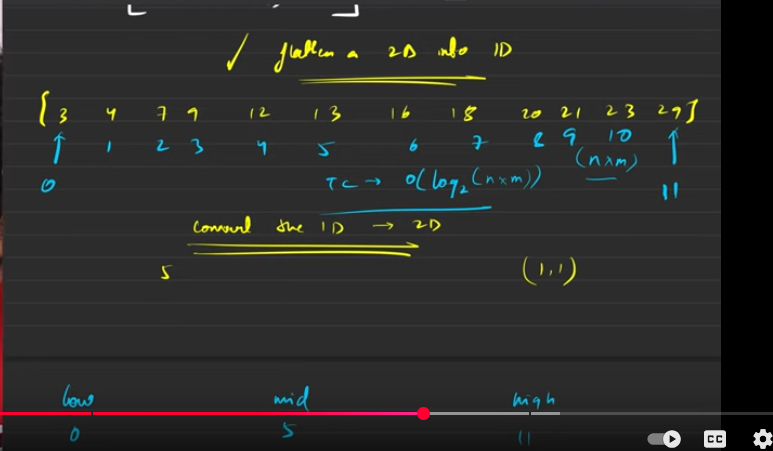 ✓ flatten a 2D into 1D
[3 4 7 9 12 13 16 18 20 21 23 29]
0 1 2 3 4 5 6 7 8 9 10 11
TC → O(log₂(n×m)) (n×m)
convert the 1D → 2D
5 (1,1)
low mid high
0 5 11
CC